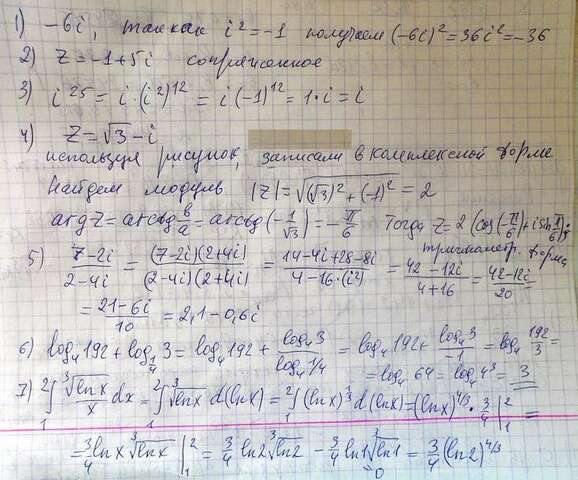 1) -6i, так как i² = -1 получаем (-6i)² = 36i² = -36
2) Z = -1+5i сопряженное
3) i²⁵ = i·(i²)¹² = i(-1)¹² = 1·i = i
4) Z = √3 - i
используя рисунок, записали в комплексной форме
Найдем модуль |Z| = √((√3)² + (-1)²) = 2
arg Z = arctg b/a = arctg(-1/√3) = -π/6 Тогда Z = 2(cos(-π/6)+i sin π/6);
тригонометр. форма
5) (7-2i)/(2-4i) = (7-2i)(2+4i)/(2-4i)(2+4i) = (14-4i+28-8i)/(4-16·(i²)) = (42-12i)/(4+16) = (42-12i)/20
= (21-6i)/10 = 2,1-0,6i
6) log₄192 + log_¼ 3 = log₄192 + log₄3/log₄1/4 = log₄192 + log₄3/-1 = log₄ 192/3 =
= log₄ 64 = log₄4³ = 3
7) ²∫₁ ³√(ln x)/x dx = ²∫₁ ³√(ln x) d(ln x) = ²∫₁ (ln x)^⅓ d(ln x) = (ln x)^4/3 · 3/4 |²₁ =
= 3/4 ln x ³√(ln x) |²₁ = 3/4 ln2 ³√(ln2) - 3/4 ln1 ³√(ln1) = 3/4 (ln2)^4/3
=0